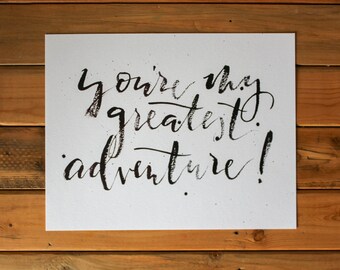 you're my
greatest
adventure!